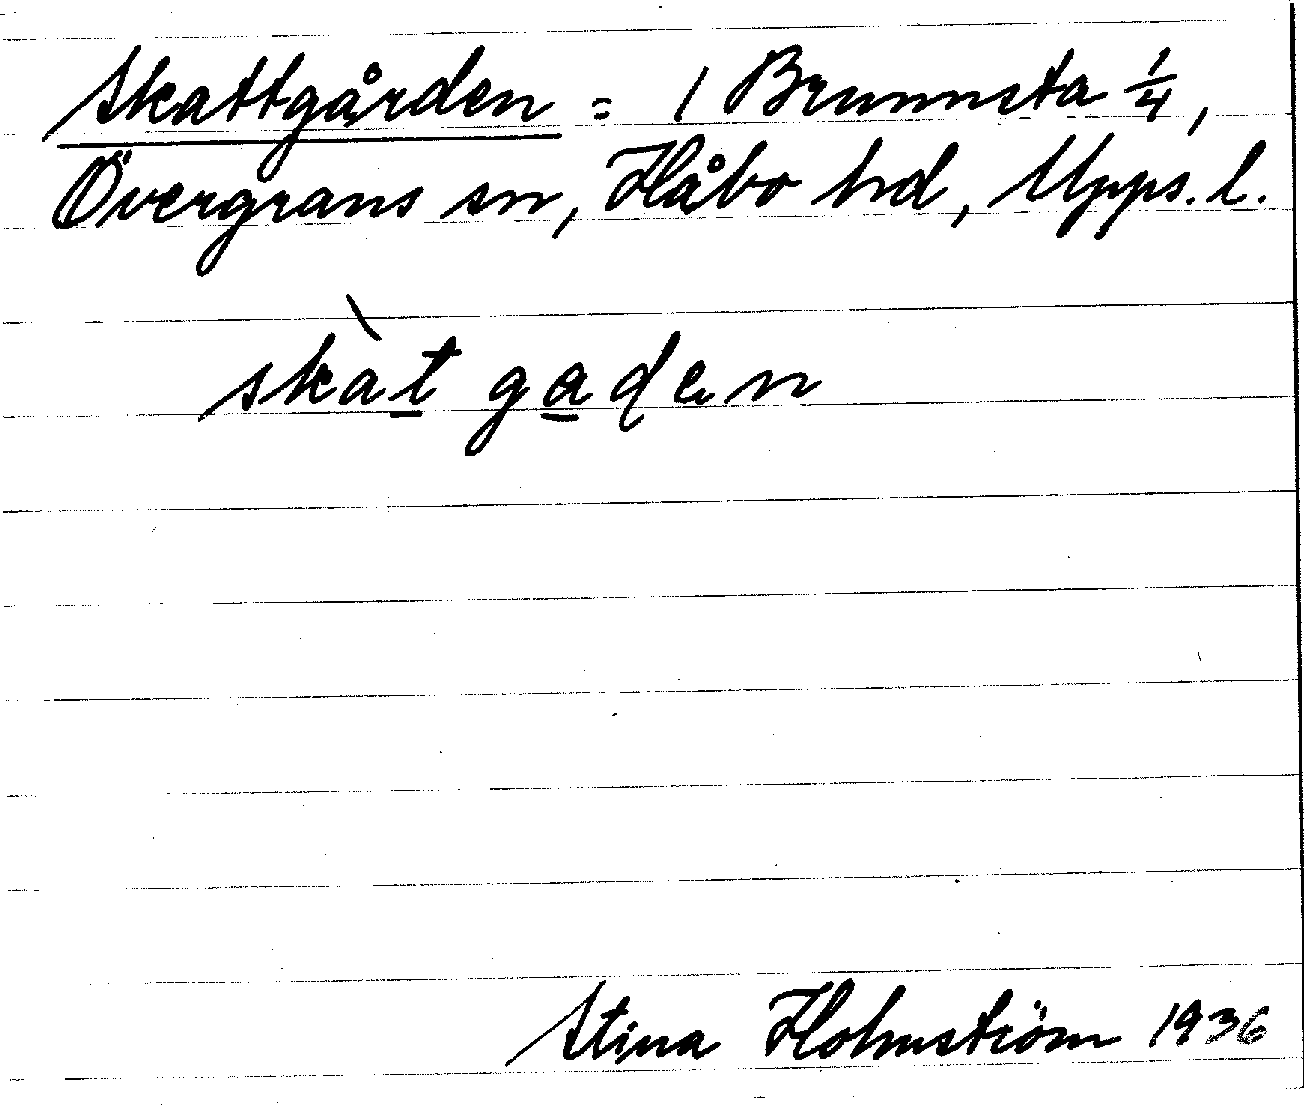 Skattgården = 1 Brunnsta 1/4,
Övergrans sn, Håbo hd, Upps. l.
skàt gaden
Stina Holmström 1936